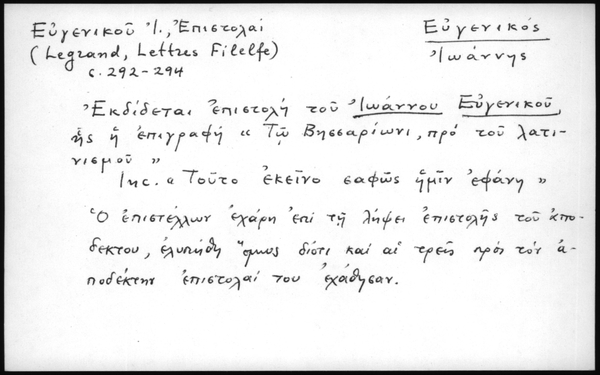 Εὐγενικοῦ Ἰ., Ἐπιστολαί
(Legrand, Lettres Filelfe)
σ. 292-294
Εὐγενικός
Ἰωάννης
Ἐκδίδεται ἐπιστολή τοῦ Ἰωάννου Εὐγενικοῦ,
ἧς ἡ ἐπιγραφή “Τῷ Βησσαρίωνι, πρό τοῦ λατι-
νισμοῦ”
Inc. “Τοῦτο ἐκεῖνο σαφῶς ἡμῖν ἐφάνη”
Ὁ ἐπιστέλλων ἐχάρη ἐπί τῇ λήψει ἐπιστολῆς τοῦ ἀπο-
δέκτου, ἐλυπήθη ὅμως διότι καί αἱ τρεῖς πρός τόν ἀ-
ποδέκτην ἐπιστολαί του ἐχάθησαν.